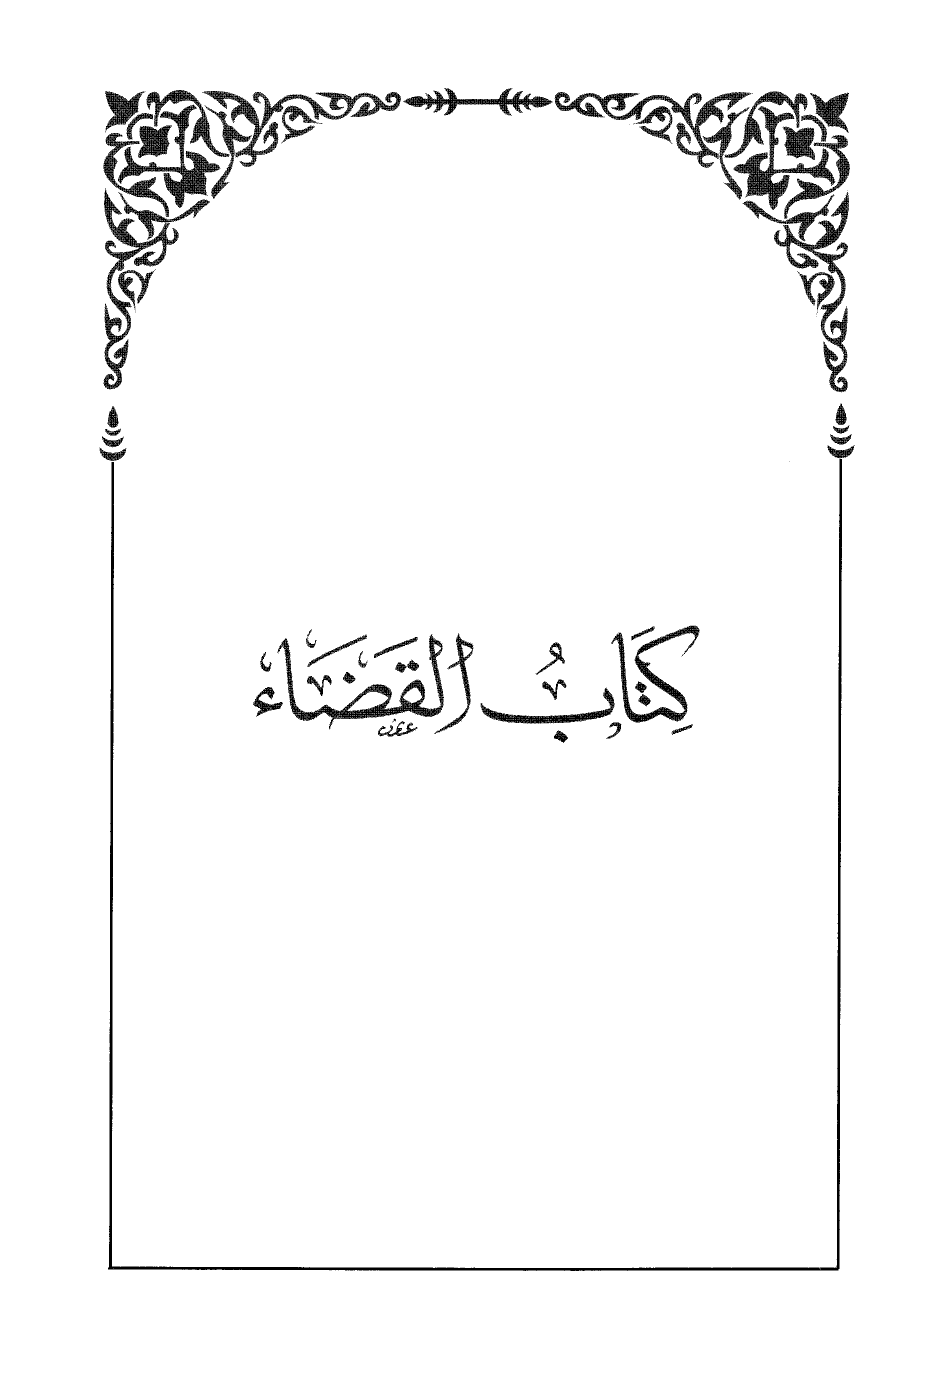 كِتَابُ القَضَاء